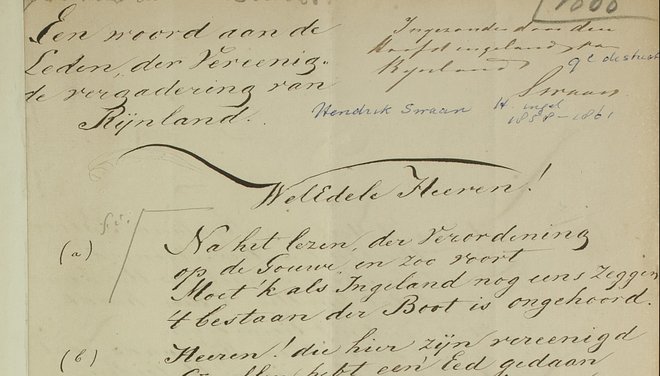 1000
Een woord aan de
Leden, der Vereenig-
de vergadering van
Rijnland.
Ingezonden door den
Hoofdingeland van
Rijnland
Swaan
Hendrik Swaan H. ingel
1858-1861
WelEdele Heeren!
(a) Na het lezen, der Verordening
op de Gouwe, en zoo voort
Moet 'k als Ingeland nog uns zeggen
't bestaan der Boot is ongehoord.
(b) Heeren! die hier zijn vereenigd
hebt een' Eed gedaan